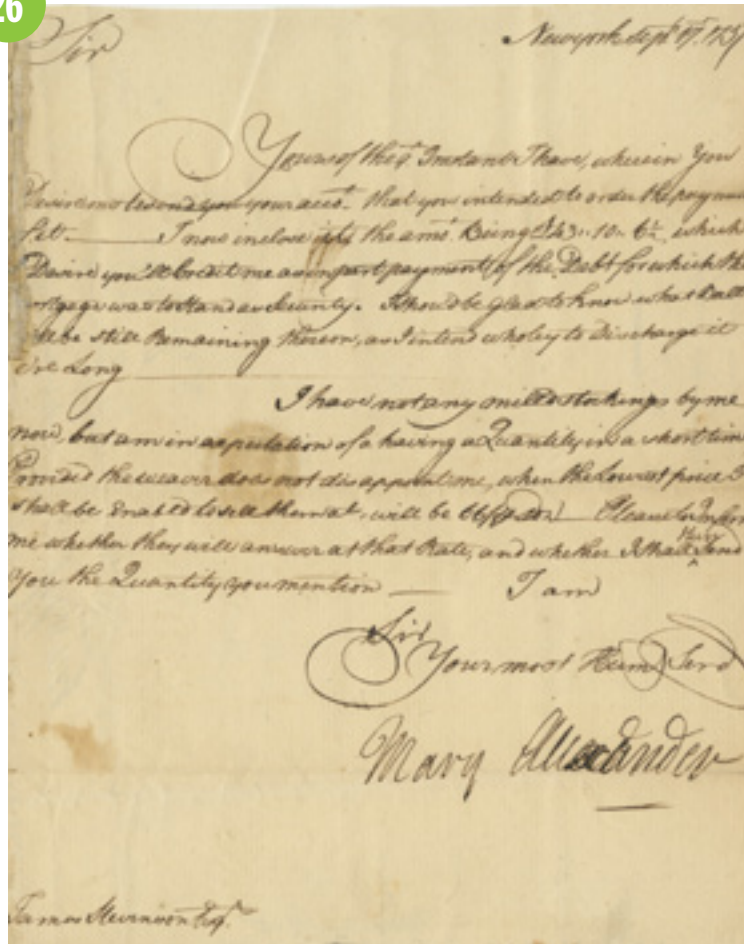 26
Sir
Newyork Sepbr 17th
Yours of the 9th Instant I have, wherein You
Desire me to send you your accot. that you intended to order the payment
I now inclose the amt. Being £43..10..6½ which
Desire you'll Credit me as in part payment of the Debt for which the
ortgage was to stand as Security. I should be glad to know what Ball
be still Remaining thereon, as I intend wholey to Discharge it
ere Long
I have not any milld stockings by me
now, but am in expectation of a having a Quantity in a short time
Provided the weaver does not disappoint me, when the Lowest price I
shall be Enabled to sell them at, will be Please to Inform
me whether they will answer at that Rate, and whether I shall then Send
You the Quantity you mention I am
Sir
Your most Humb Serv
Mary Alexander
James Stevenson Esqr.